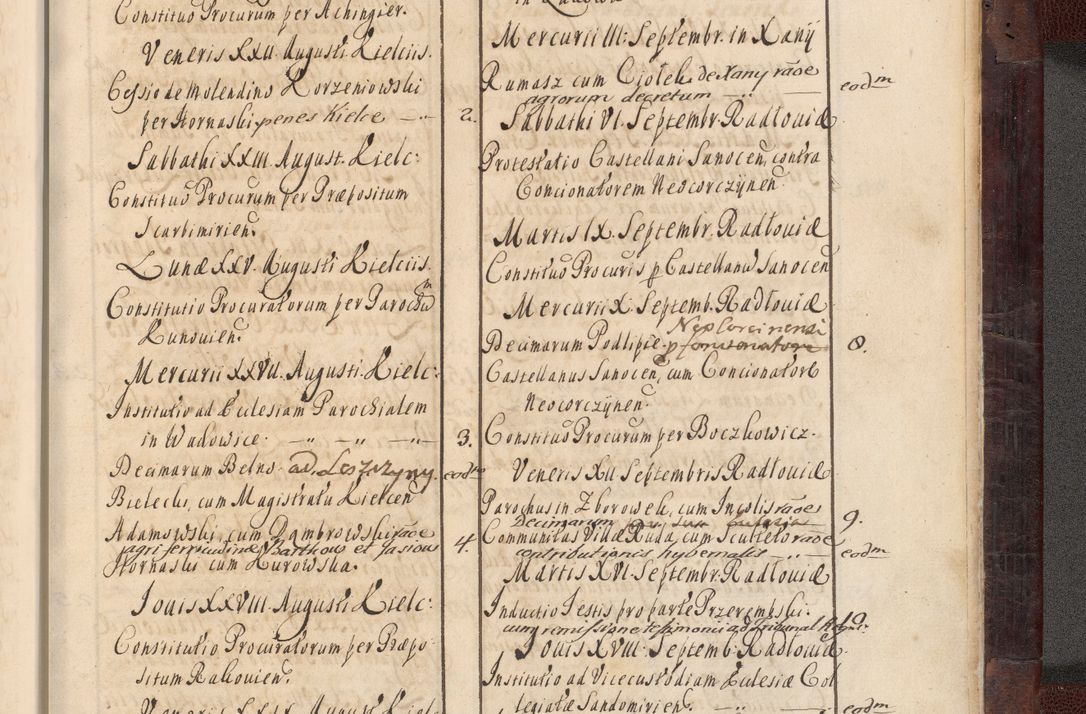 Constituo Procurum per Achingier.
Veneris XXII. Augusti. Kielciis.
Cessio de Molendino Korzeniowski
per Hornaski penes Kielce — " 2.
Sabbathi XXIII. August. Kielc:
Constituo Procurum per Præpositum
Scarbimirien.
Lunæ XXV. Augusti Kielciis.
Constitutio Procuratorum per Parochum
Kunouien.
Mercurii XXVII. Augusti. Kielc:
Institutio ad Ecclesiam Parochialem
in Wadowice. — " — " — " — 3.
Decimarum Belno. ad Leszczyny. eodm
Bielecki, cum Magistratu Kielcen
Adamowski, cum Dąmbrowski raõe
agri ferruminæ Barthous et Jasiow 4.
Hornaski cum Kurowska.
Jouis XXVIII. Augusti. Kielc:
Constitutio Procuratorum per Præpo
situm Rakouien.
Veneris XXIX. August. Kielc
Mercurii III. Septembr. in Xanÿ
Rumasz cum Ciołek de Xany raõe eodm
agrorum decretum — " —
Sabbathi VI. Septembr. Radłouiæ
Protestatio Castellani Sanocen, contra
Concionatorem Neocorczÿnen.
Martis IX. Septembr. Radłouiæ
Constituo Procuris p Castellanu Sanocen
Mercurii X. Septemb. Radłouiæ
Neo Corcinensi
Decimarum Podlipie. p Concionatore 8.
Castellanus Sanocen, cum Concionatore
Neocorczÿnen.
Constituo Procurum per Boczkowicz.
Veneris XII Septembris Radłouiæ
Parochus in Zborowek, cum Incolis raõe
Decimarum 9.
Communitas Villæ Ruda, cum Sculteto raõe
contributionis hybernalis — " — eodm
Martis XVI. Septembr. Radłouiæ
Inductio Testis pro parte Przerembski.
cum remissione testimonii ad Tribunal Regni: 10.
Jouis XVIII. Septemb. Radłouiæ
Institutio ad Vicecustodiam Eclesiæ Col
legiatæ Sandomirien. — " — eodm